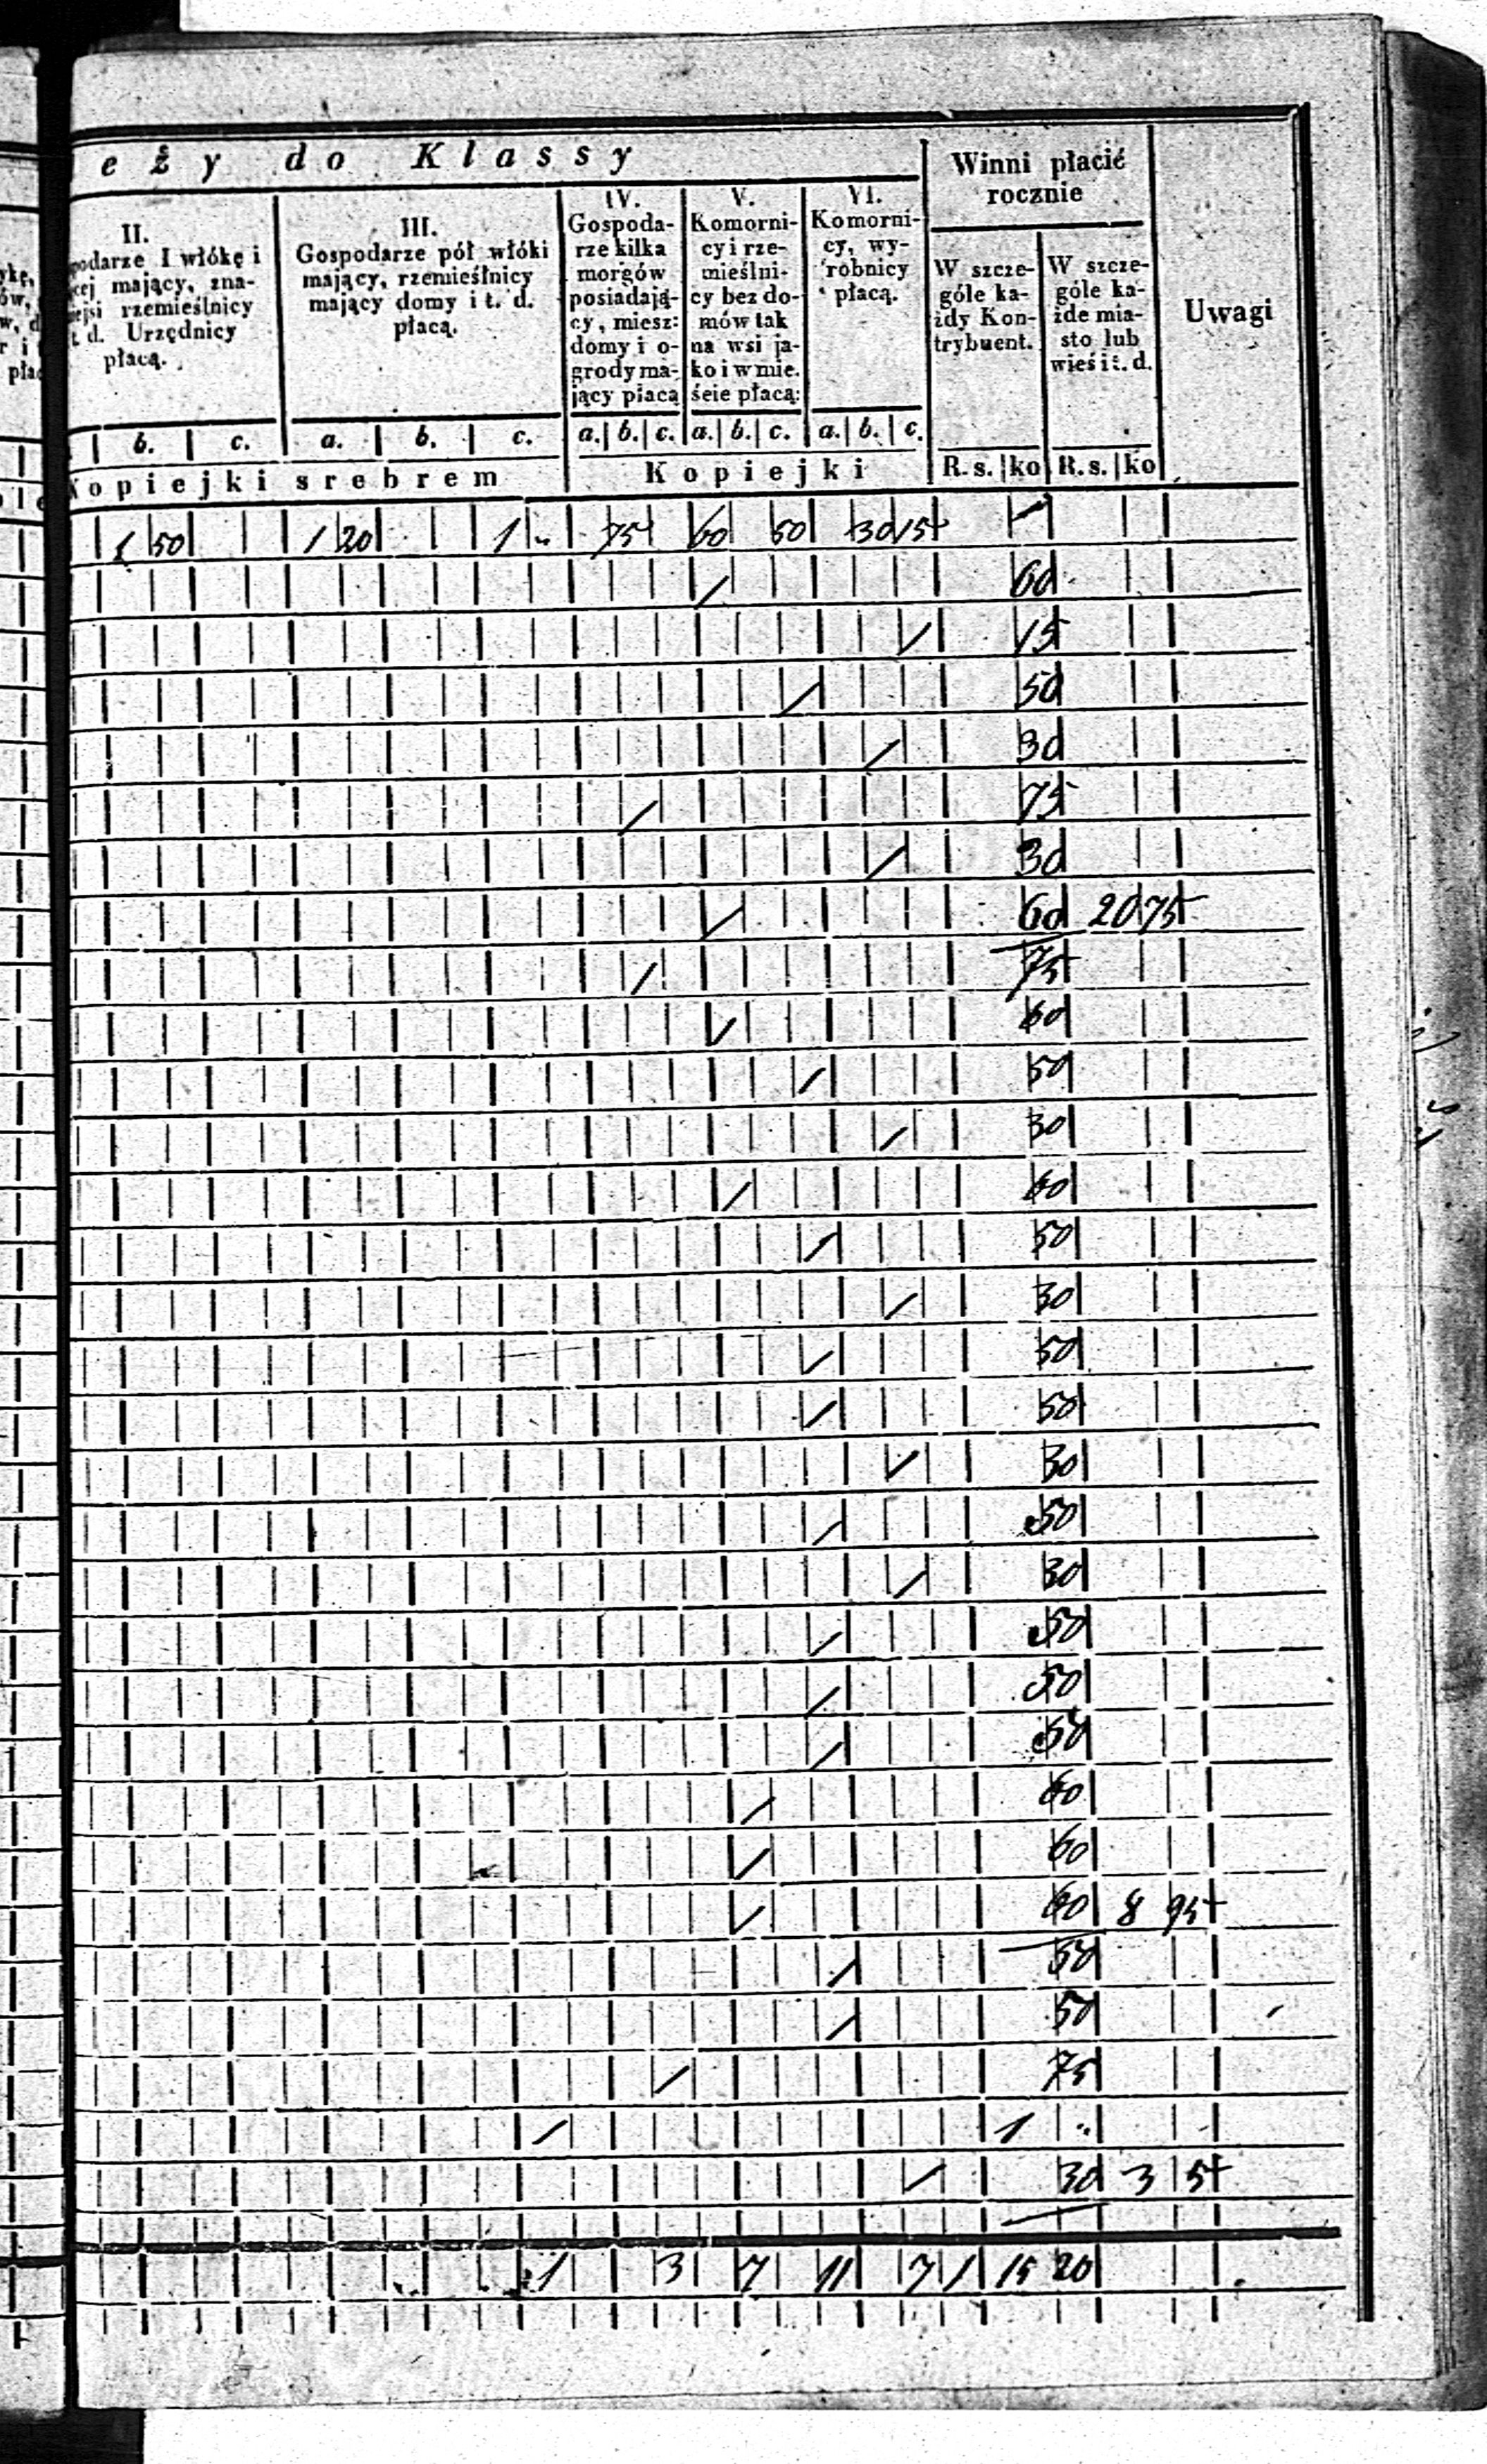 eży do Klassy
Winni płacić
rocznie
Uwagi
II.
podarze I włókę i
cej mający, zna-
rzemieślnicy
t. d. Urzędnicy
płacą.
III.
Gospodarze pół włóki
mający, rzemieślnicy
mający domy i t. d.
płacą.
IV.
Gospoda-
rze kilka
morgów
posiadają-
cy, miesz:
domy i o-
grody ma-
jący płacą
V.
Komorni-
cy i rze-
mieślni-
cy bez do-
mów tak
na wsi ja-
ko i w mie.
ście płacą:
VI.
Komorni-
cy, wy-
robnicy
płacą.
W szcze-
góle ka-
żdy Kon-
trybuent.
W szcze-
góle ka-
żde mia-
sto lub
wieś i t. d.
b. c. a. b. c. a. b. c. a. b. c. a. b. c.
Kopiejki srebrem Kopiejki R. s. ko R. s. ko
1 50 1 20 1 „ 75 60 50 30 15
60
15
50
30
75
30
60 20 75
75
60
50
30
60
50
30
50
50
30
50
30
50
50
50
60
60
60 8 95
50
50
75
1 „
30 3 5
1 3 7 11 7 1 15 20